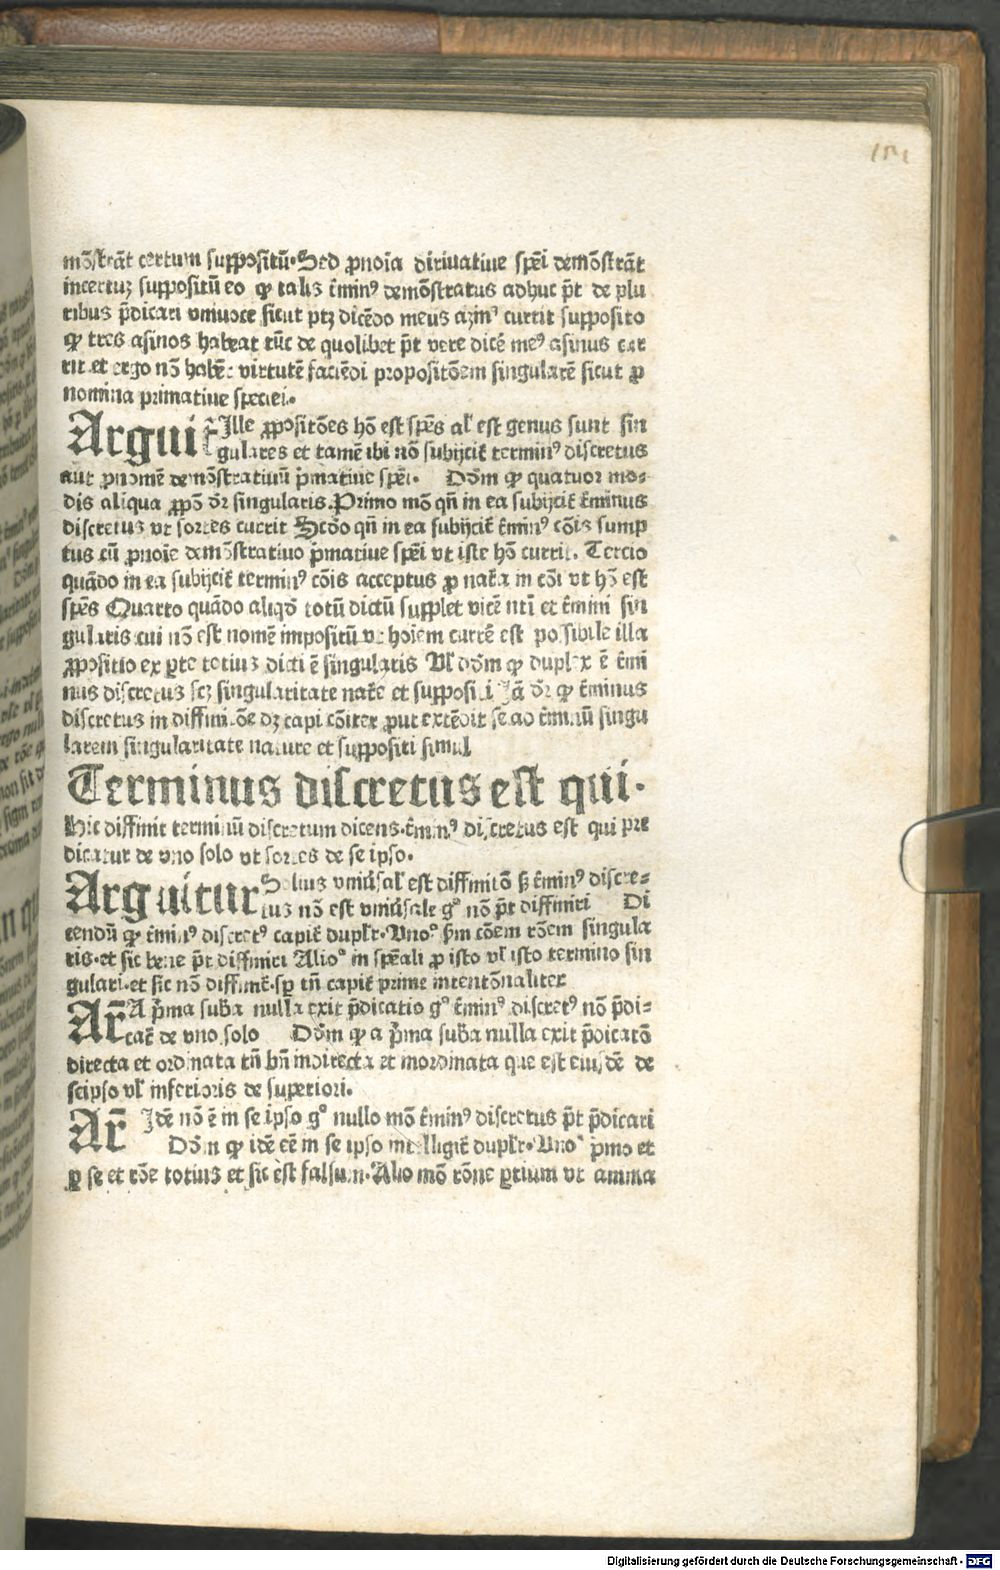 mōstrāt certum suppositū. Sed ꝓnoīa diriuatiue spēi demōstrāt
incertuꝫ suppositū eo ꝙ talis t̄minꝰ demōstratus adhuc p̄t de plu
ribus p̄dicari vniuoce sicut ptꝫ dicēdo meus aꝫinꝰ currit supposito
ꝙ tres asinos habeat tūc de quolibet p̄t vere dicē meꝰ asinus cur
rit et ergo nō habēt virtutē faciēdi propositōem singularē sicut ꝓ
nomina primatiue speciei.
Arguit̄ Ille ꝓpositōes hō est spēs al' est genus sunt sin
gulares et tamē ibi nō subijcit̄ terminꝰ discretus
aut ꝓnomē demōstratiuū p̄matiue spēi. Dōm ꝙ quatuor mo-
dis aliqua ꝓpō dr̄ singularis. Primo mō qn̄ in ea subijcit̄ t̄minus
discretus vt sortes currit Scdo qn̄ in ea subijcit̄ t̄minꝰ cōis sump
tus cū ꝓnoīe demōstratiuo p̄matiue spēi vt iste hō currit. Tercio
quādo in ea subijcit̄ terminꝰ cōis acceptus ꝓ nat̄a in cōi vt hō est
spēs Quarto quādo aliqd̄ totū dictū supplet vicē nt̄i et t̄mini sin
gularis cui nō est nomē impositū vt hoiem currē est possibile illa
ꝓpositio ex ꝑte totius dicti ē singularis Vl' dōm ꝙ duplex ē t̄mi
nus discretus scꝫ singularitate nat̄e et suppositi Iā dr̄ ꝙ t̄minus
discretus in diffinitōe dꝫ capi cōiter ꝓut extēdit se ad t̄minū singu
larem singularitate nature et suppositi simul
Terminus discretus est qui.
Hic diffinit terminū discretum dicens. t̄minꝰ discretus est qui pre
dicatur de vno solo vt sortes de se ipso.
Arguitur Solius vniūsal' est diffinitō sꝫ t̄minꝰ discre-
tus nō est vniūsale gº nō p̄t diffiniri Di
cendū ꝙ t̄minꝰ discretꝰ capit̄ duplr̄. Vnoº ẜm cōem rōem singula
ris. et sic bene p̄t diffiniri Alioº in spēali ꝓ isto vl' isto termino sin
gulari. et sic nō diffinit̄. sꝑ tn̄ capit̄ prime intentōnaliter
Ar̄ A p̄ma sub̄a nulla exit p̄dicatio gº t̄minꝰ discretꝰ nō p̄di-
cat̄ de vno solo Dōm ꝙ a p̄ma sub̄a nulla exit p̄dicatō
directa et ordinata tn̄ bn̄ indirecta et inordinata que est eiusdē de
seipso vl' inferioris de superiori.
Ar̄ Idē nō ē in se ipso gº nullo mō t̄minꝰ discretus p̄t p̄dicari
Dōm ꝙ idē eē in se ipso intelligit̄ duplr̄. Vnoº pmo et
ꝑ se et rōe totius et sic est falsum. Alio mō rōne ꝑtium vt anima
Digitalisierung gefördert durch die Deutsche Forschungsgemeinschaft - DFG